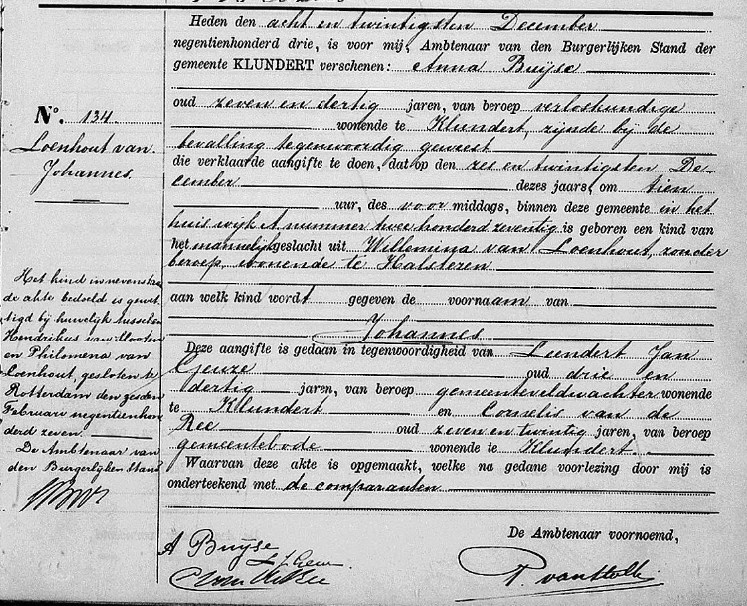 Heden den acht en twintigsten December
negentienhonderd drie, is voor mij, Ambtenaar van den Burgerlijken Stand der
gemeente KLUNDERT verschenen: Anna Buijse
oud zeven en dertig jaren, van beroep verloskundige
wonende te Klundert, zijnde bij de
bevalling tegenwoordig geweest
die verklaarde aangifte te doen, dat op den zes en twintigsten De-
cember dezes jaars, om tien
uur, des voor middags, binnen deze gemeente in het
huis wijk A nummer twee honderd zeventig is geboren een kind van
het mannelijk geslacht uit Willemina van Loenhout, zonder
beroep, wonende te Halsteren
aan welk kind wordt gegeven de voornaam van
Johannes
Deze aangifte is gedaan in tegenwoordigheid van Leendert Jan
Geuze oud drie en
dertig jaren, van beroep gemeenteveldwachter wonende
te Klundert en Cornelis van de
Ree oud zeven en twintig jaren, van beroep
gemeentebode wonende te Klundert
Waarvan deze akte is opgemaakt, welke na gedane voorlezing door mij is
onderteekend met de comparanten
De Ambtenaar voornoemd,
A Buijse
No. 134
Loenhout van
Johannes.
Het kind in nevenstaan-
de akte bedoeld is gewet-
tigd bij huwelijk tusschen
Hendrikus
en Philomena van
Loenhout, gesloten te
Rotterdam den zesden
Februari negentienhon-
derd zeven.
De Ambtenaar van
den Burgerlijken Stand